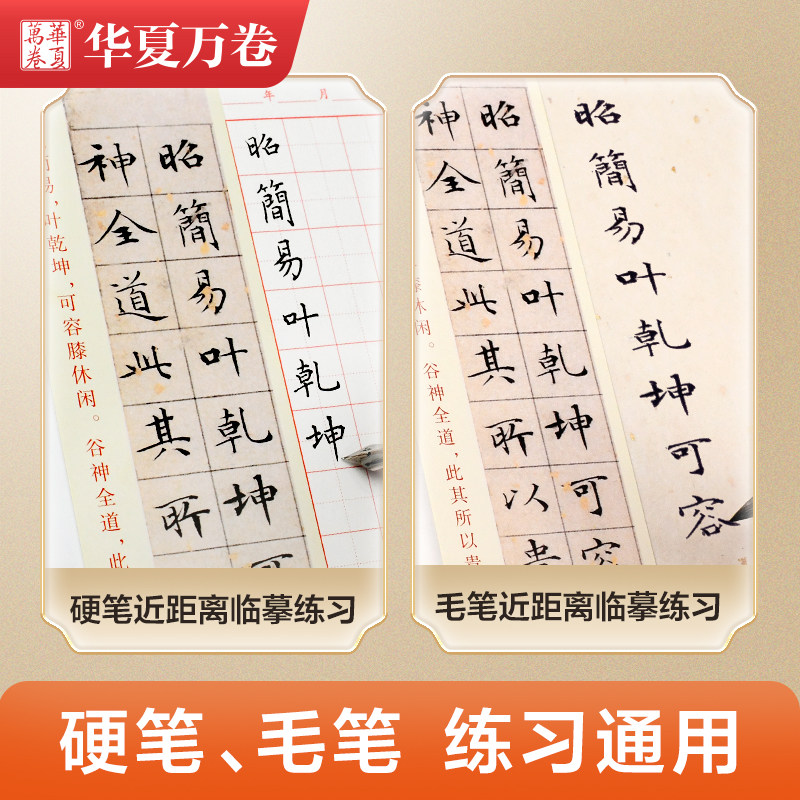 華夏
萬卷
®
华夏万卷
年 月
昭簡易叶乾坤
昭簡易叶乾坤可
神全道此其所
易，叶乾坤，可容膝休闲。谷神全道，此
硬笔近距离临摹练习
昭簡易叶乾坤可容
昭簡易叶乾坤可容
神全道此其所以貴
休闲。谷神全道，此其所以贵
毛笔近距离临摹练习
硬笔、毛笔 练习通用